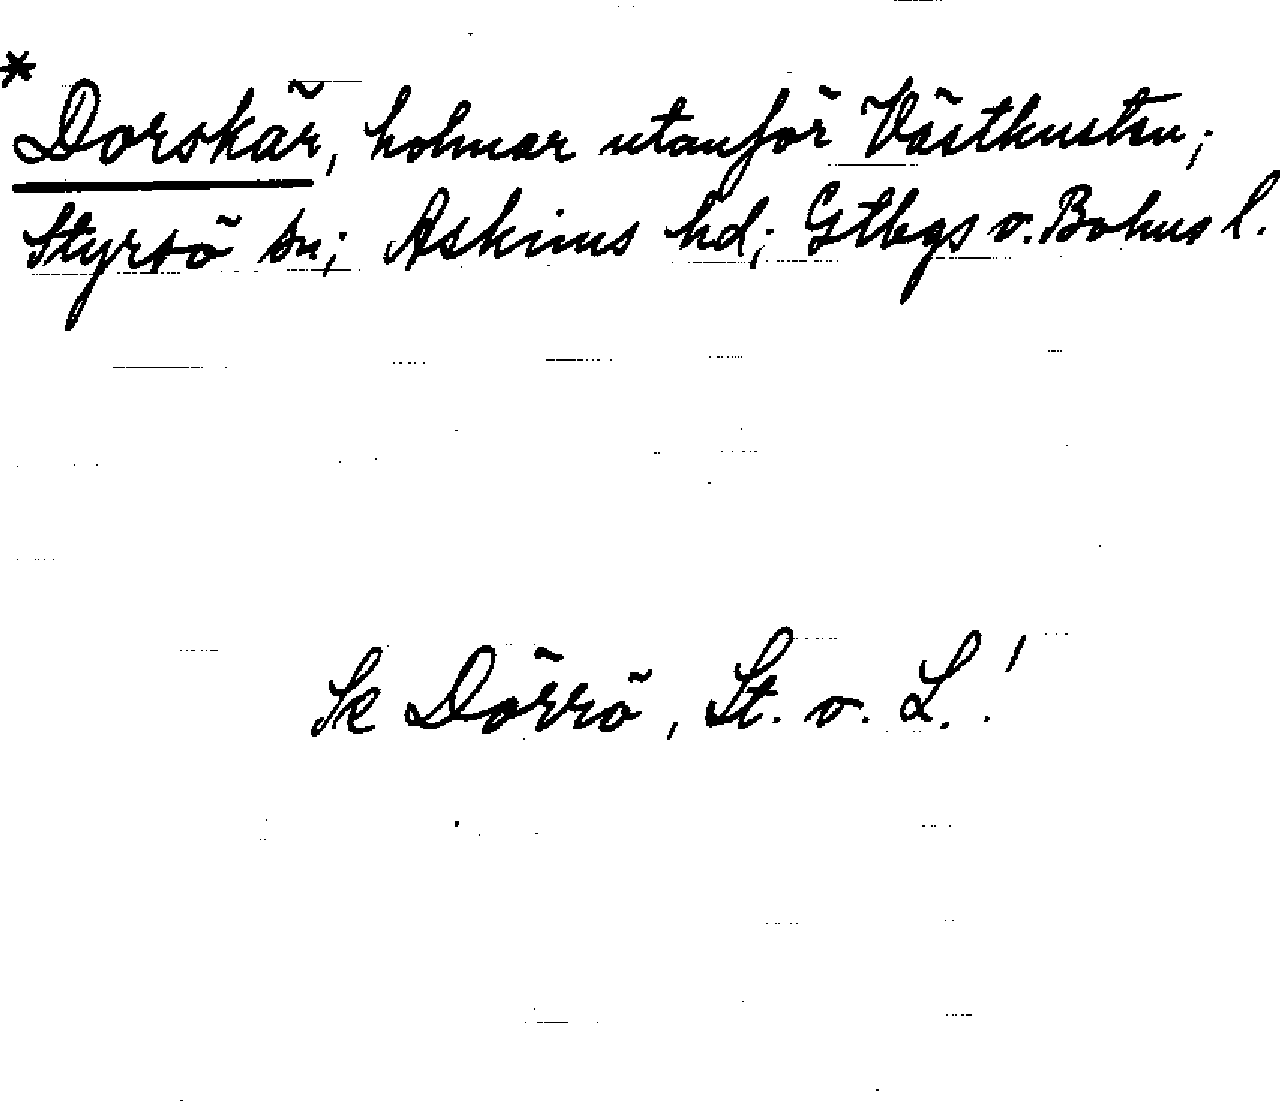 *Dorskär, holmar utanför Västkusten;
Styrsö sn; Askims hd; Gtbgs o. Bohus l.
Se Dörrö, St. o. L.!